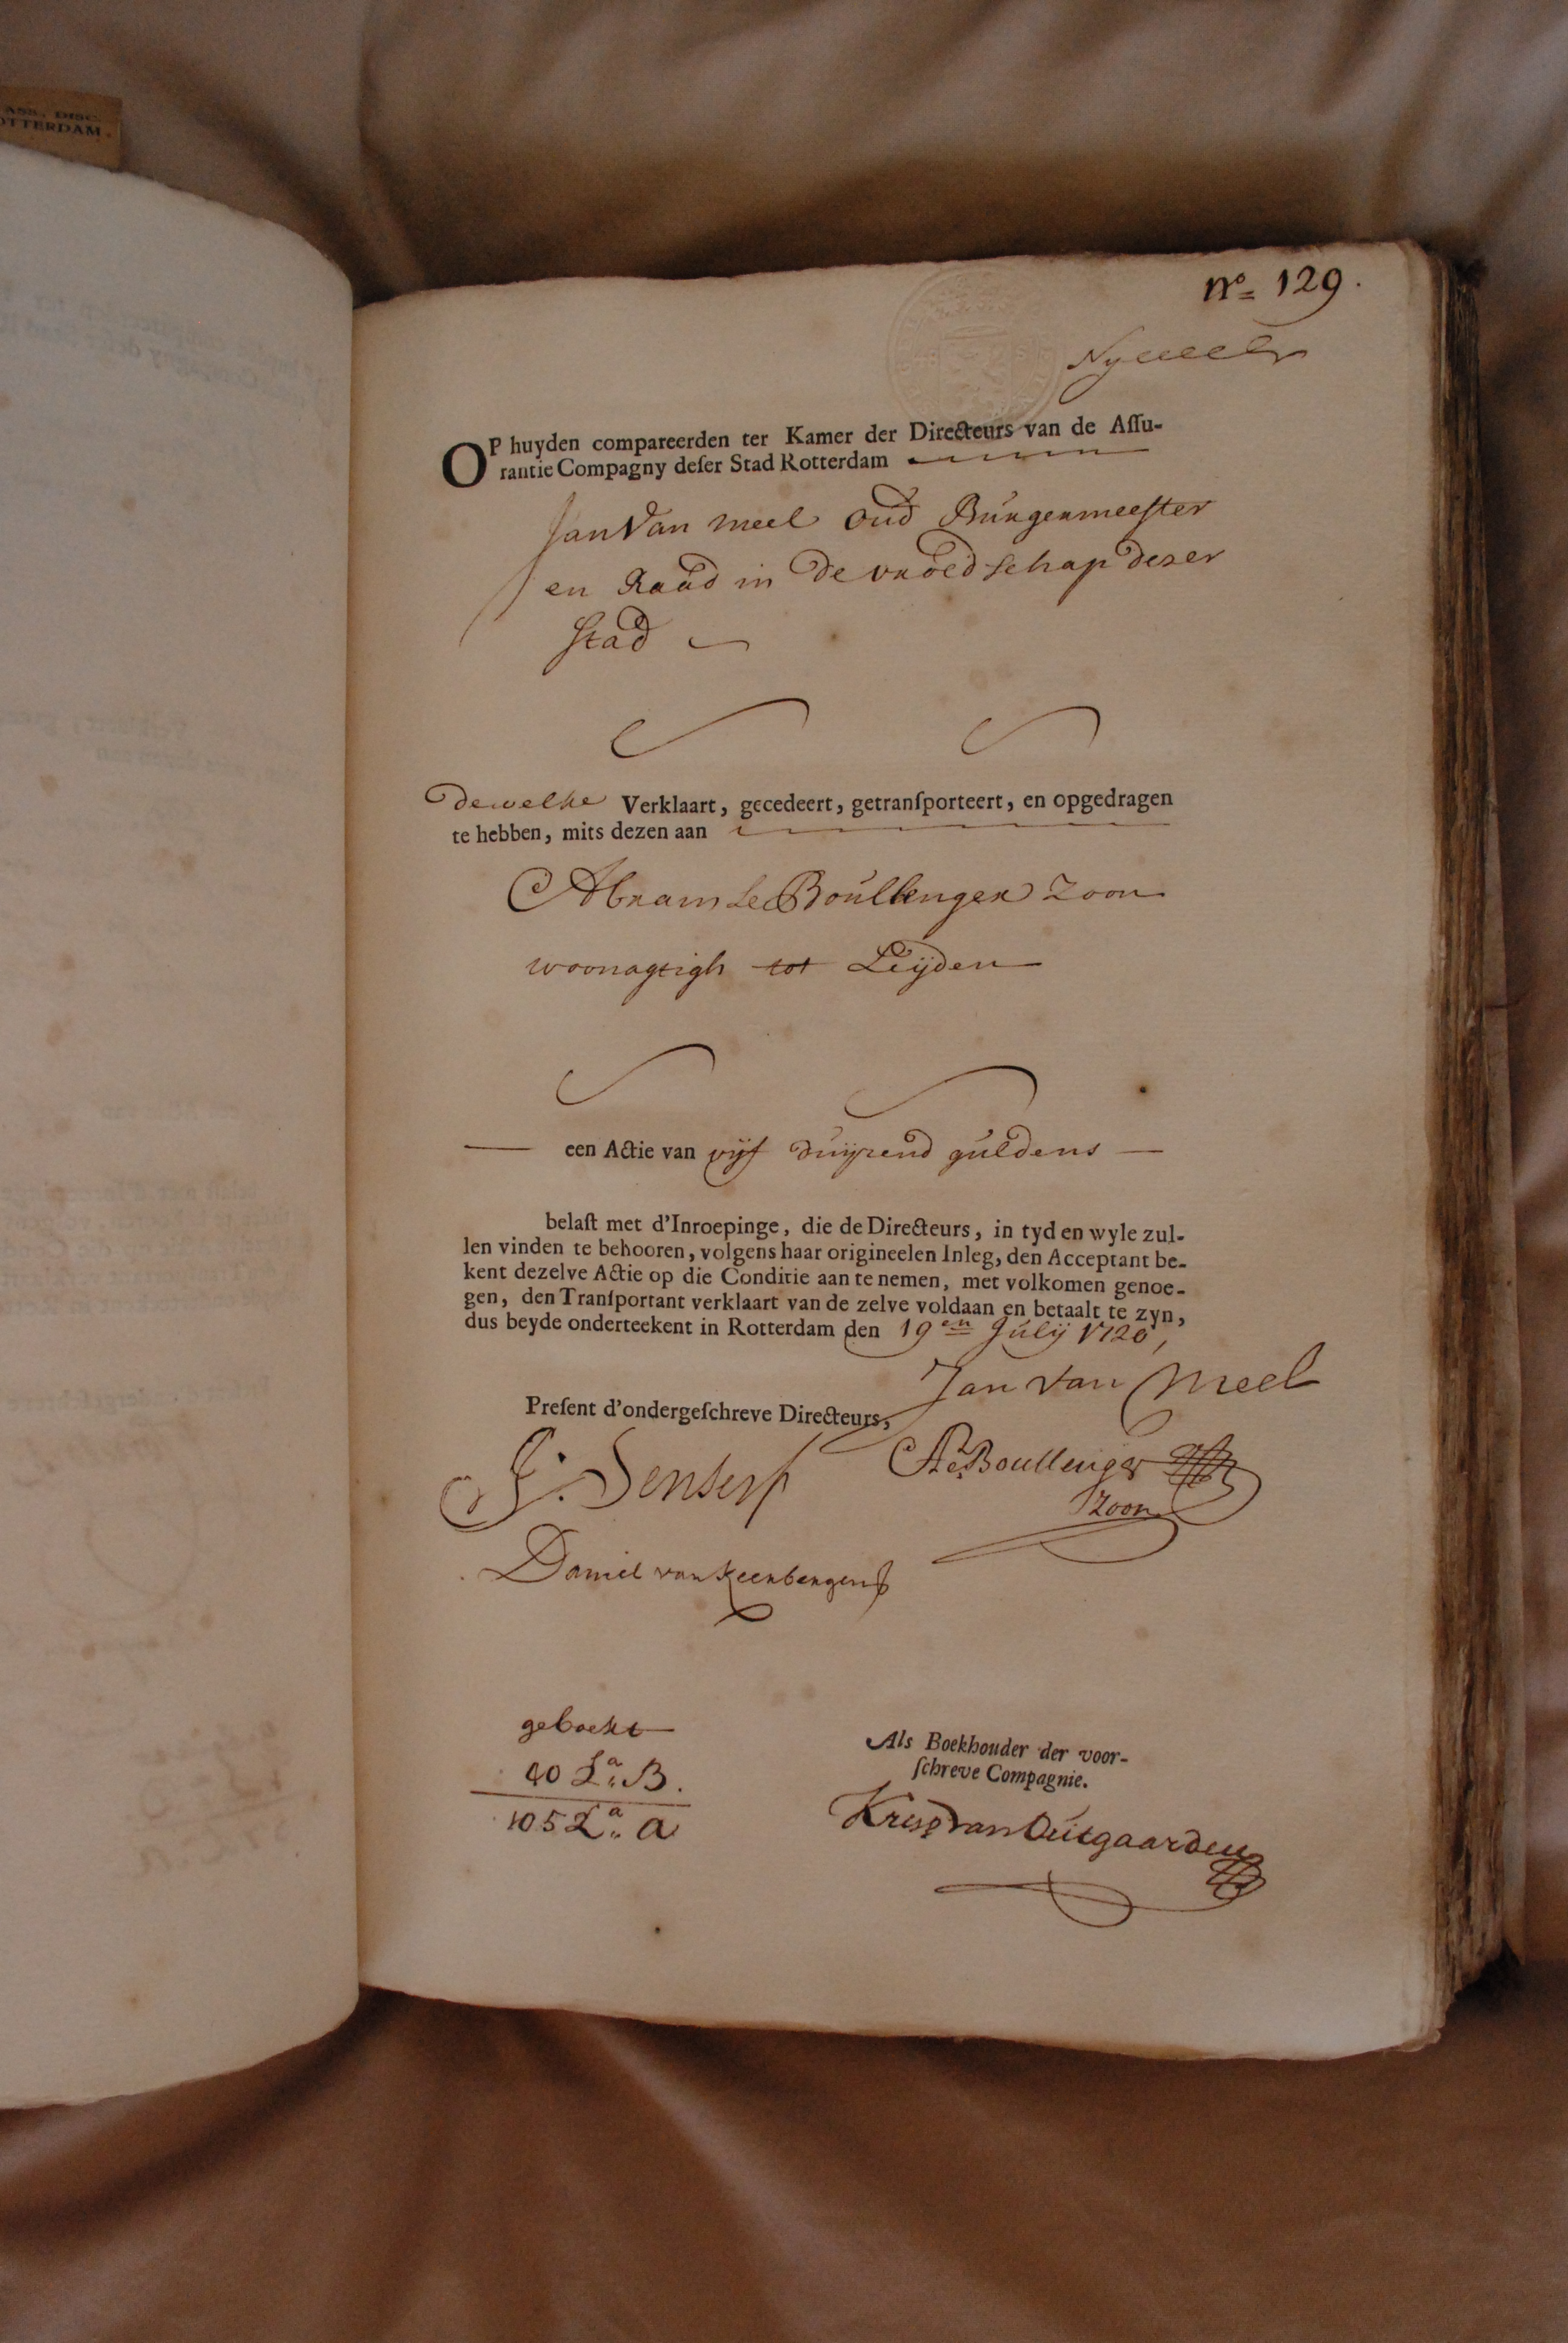 ASS. DISC.
OTTERDAM.
No= 129.
OP huyden compareerden ter Kamer der Directeurs van de Aſſu-
rantie Compagny deſer Stad Rotterdam
Jan Van meel oud Burgermeester
en Raad in de vroedschap dezer
Stad
dewelke Verklaart, gecedeert, getranſporteert, en opgedragen
te hebben, mits dezen aan
Abram Le Boullenger Zoon
woonagtigh tot Leijden
een Actie van vijf duijzend guldens
belaſt met d'Inroepinge, die de Directeurs, in tyd en wyle zul-
len vinden te behooren, volgens haar origineelen Inleg, den Acceptant be-
kent dezelve Actie op die Conditie aan te nemen, met volkomen genoe-
gen, den Tranſportant verklaart van de zelve voldaan en betaalt te zyn,
dus beyde onderteekent in Rotterdam den 19en Julij 1720,
Jan van Meel
Preſent d'ondergeſchreve Directeurs,
A Le Boullenger
Zoon
J. Senserf
Daniel van
geboekt
40 La B.
105 La a
Als Boekhouder der voor-
ſchreve Compagnie.
Krisp van Outgaarden